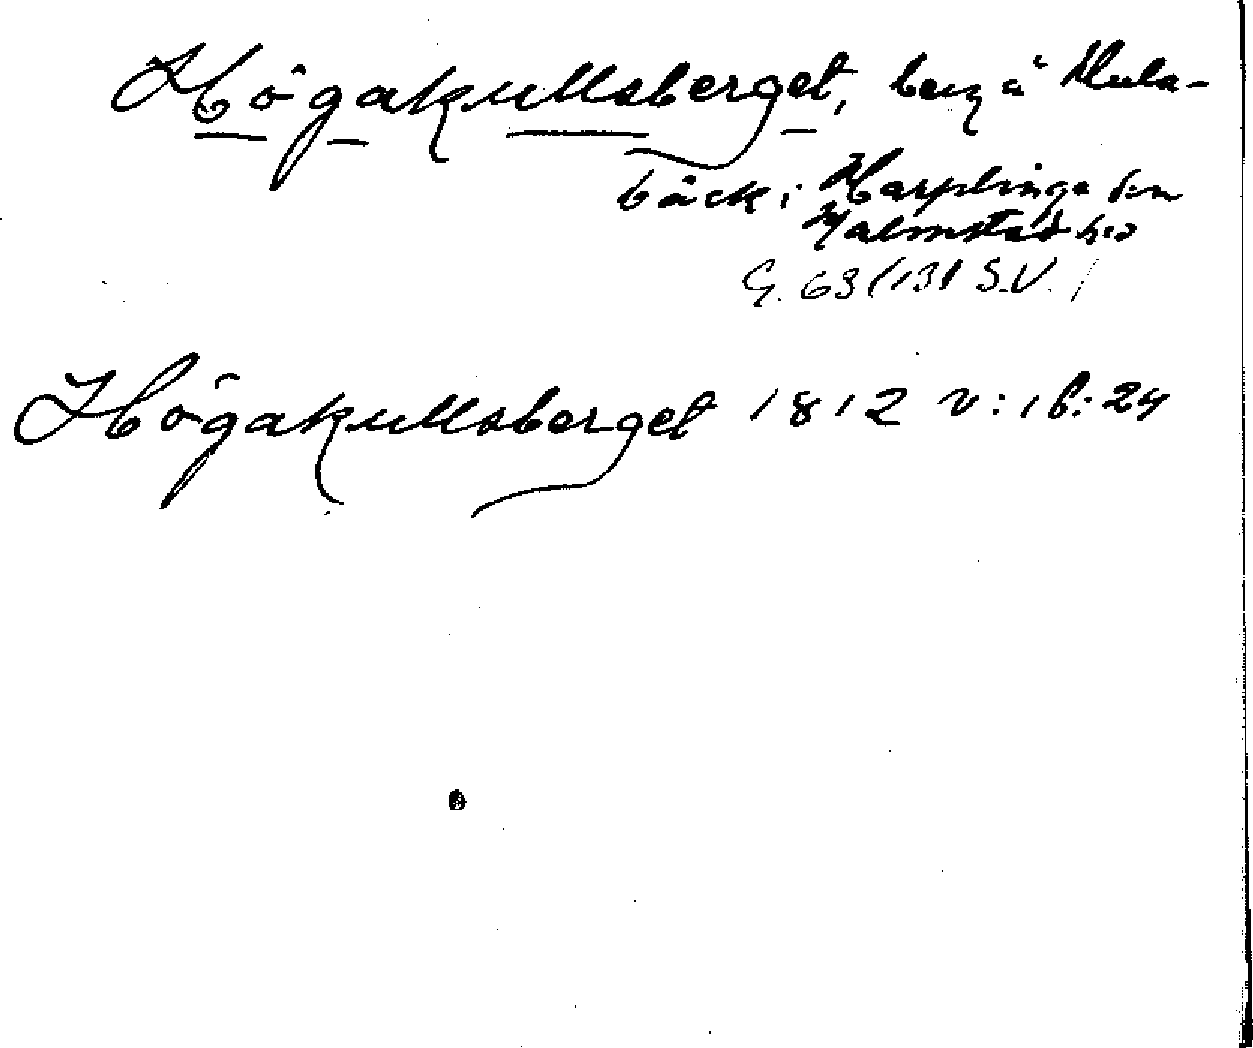 Högakullsberget, berg å Kula-
bäck i Harplinge sn
Halmstad hd
G. 63 (131 S.V.)
Högakullsberget 1812 v: 16: 24